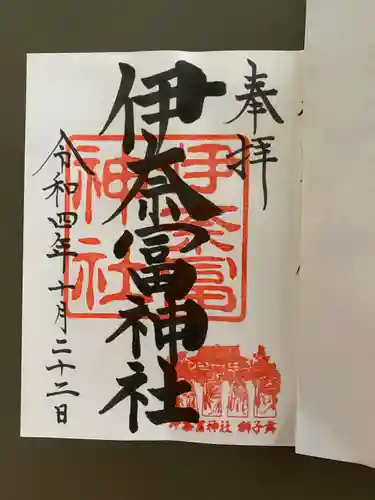 奉拝
伊奈冨神社
令和四年十月二十二日
伊奈冨
神社
伊奈冨神社 獅子舞